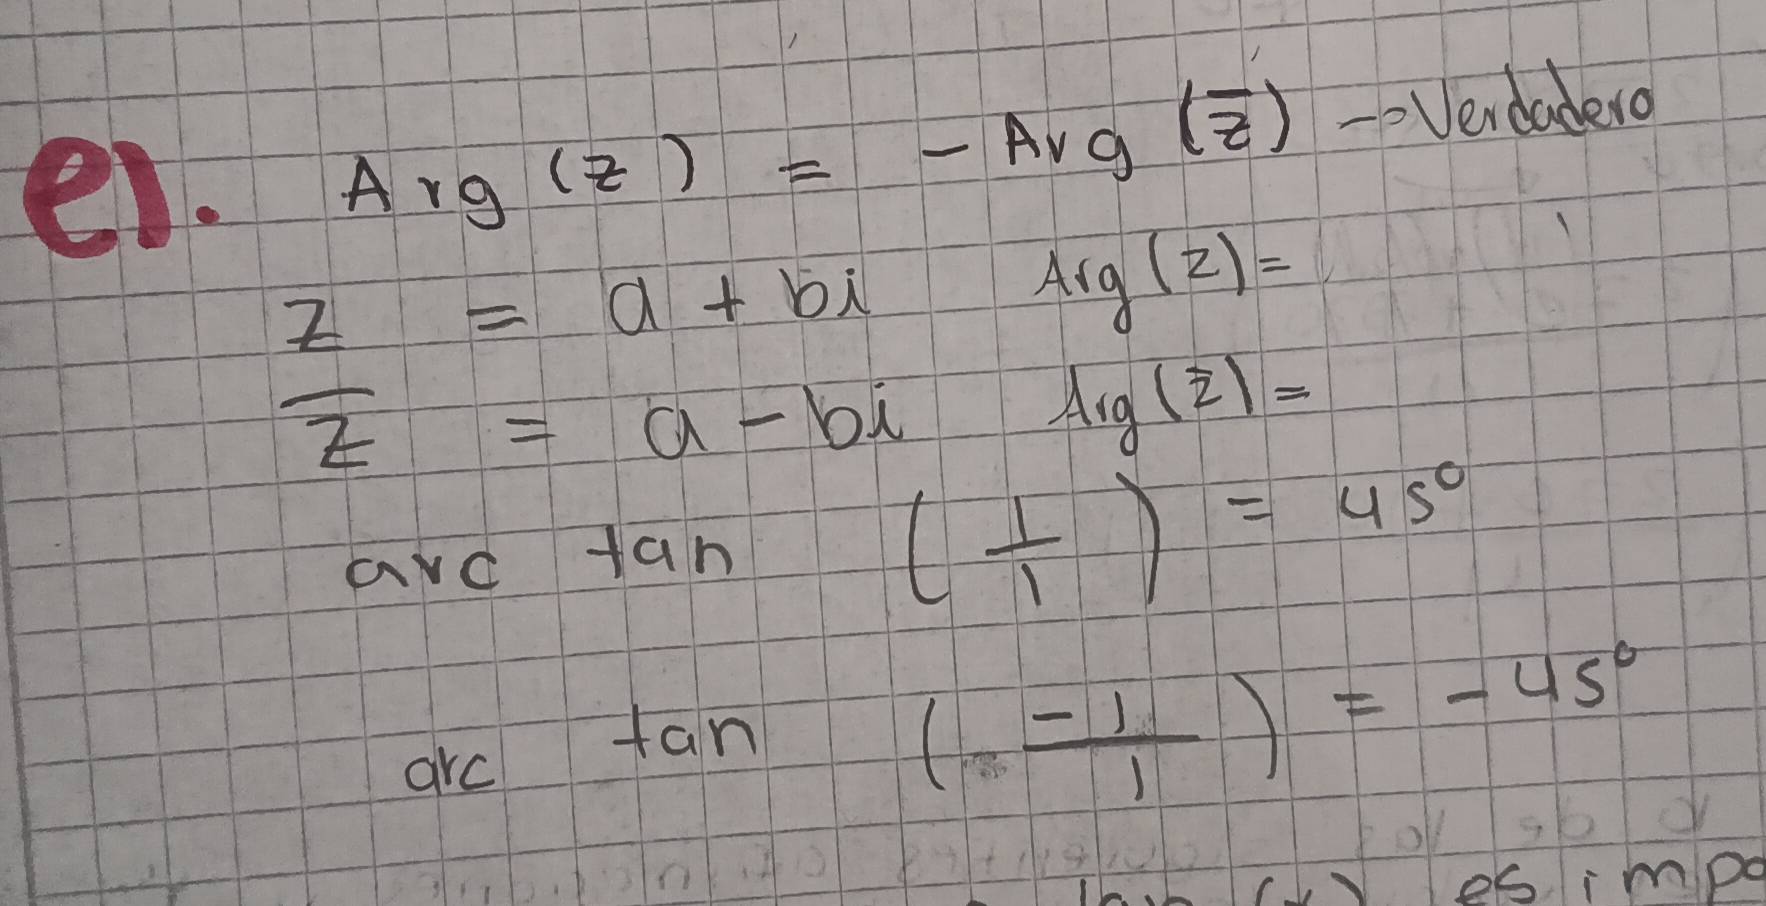 e). Arg (z) = - Arg (z̅) → Verdadero
z = a + bi Arg (z) =
z̅ = a - bi Arg (z̅) =
arc tan (1/1) = 45°
arc tan (-1/1) = -45°
(x) es impa